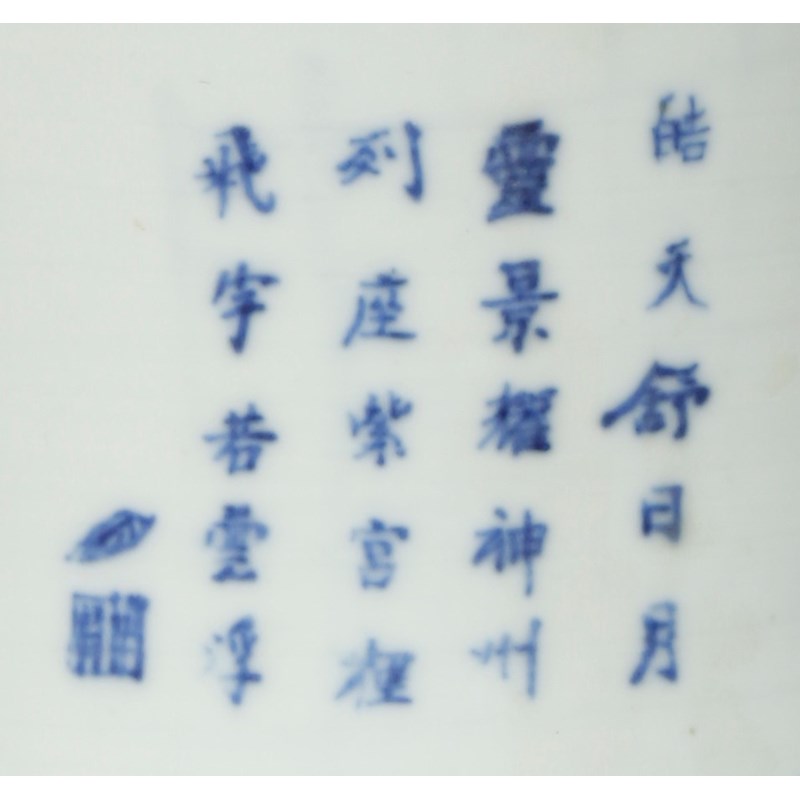 皓天舒日月
靈景耀神州
列座紫宮裡
飛宇若雲浮